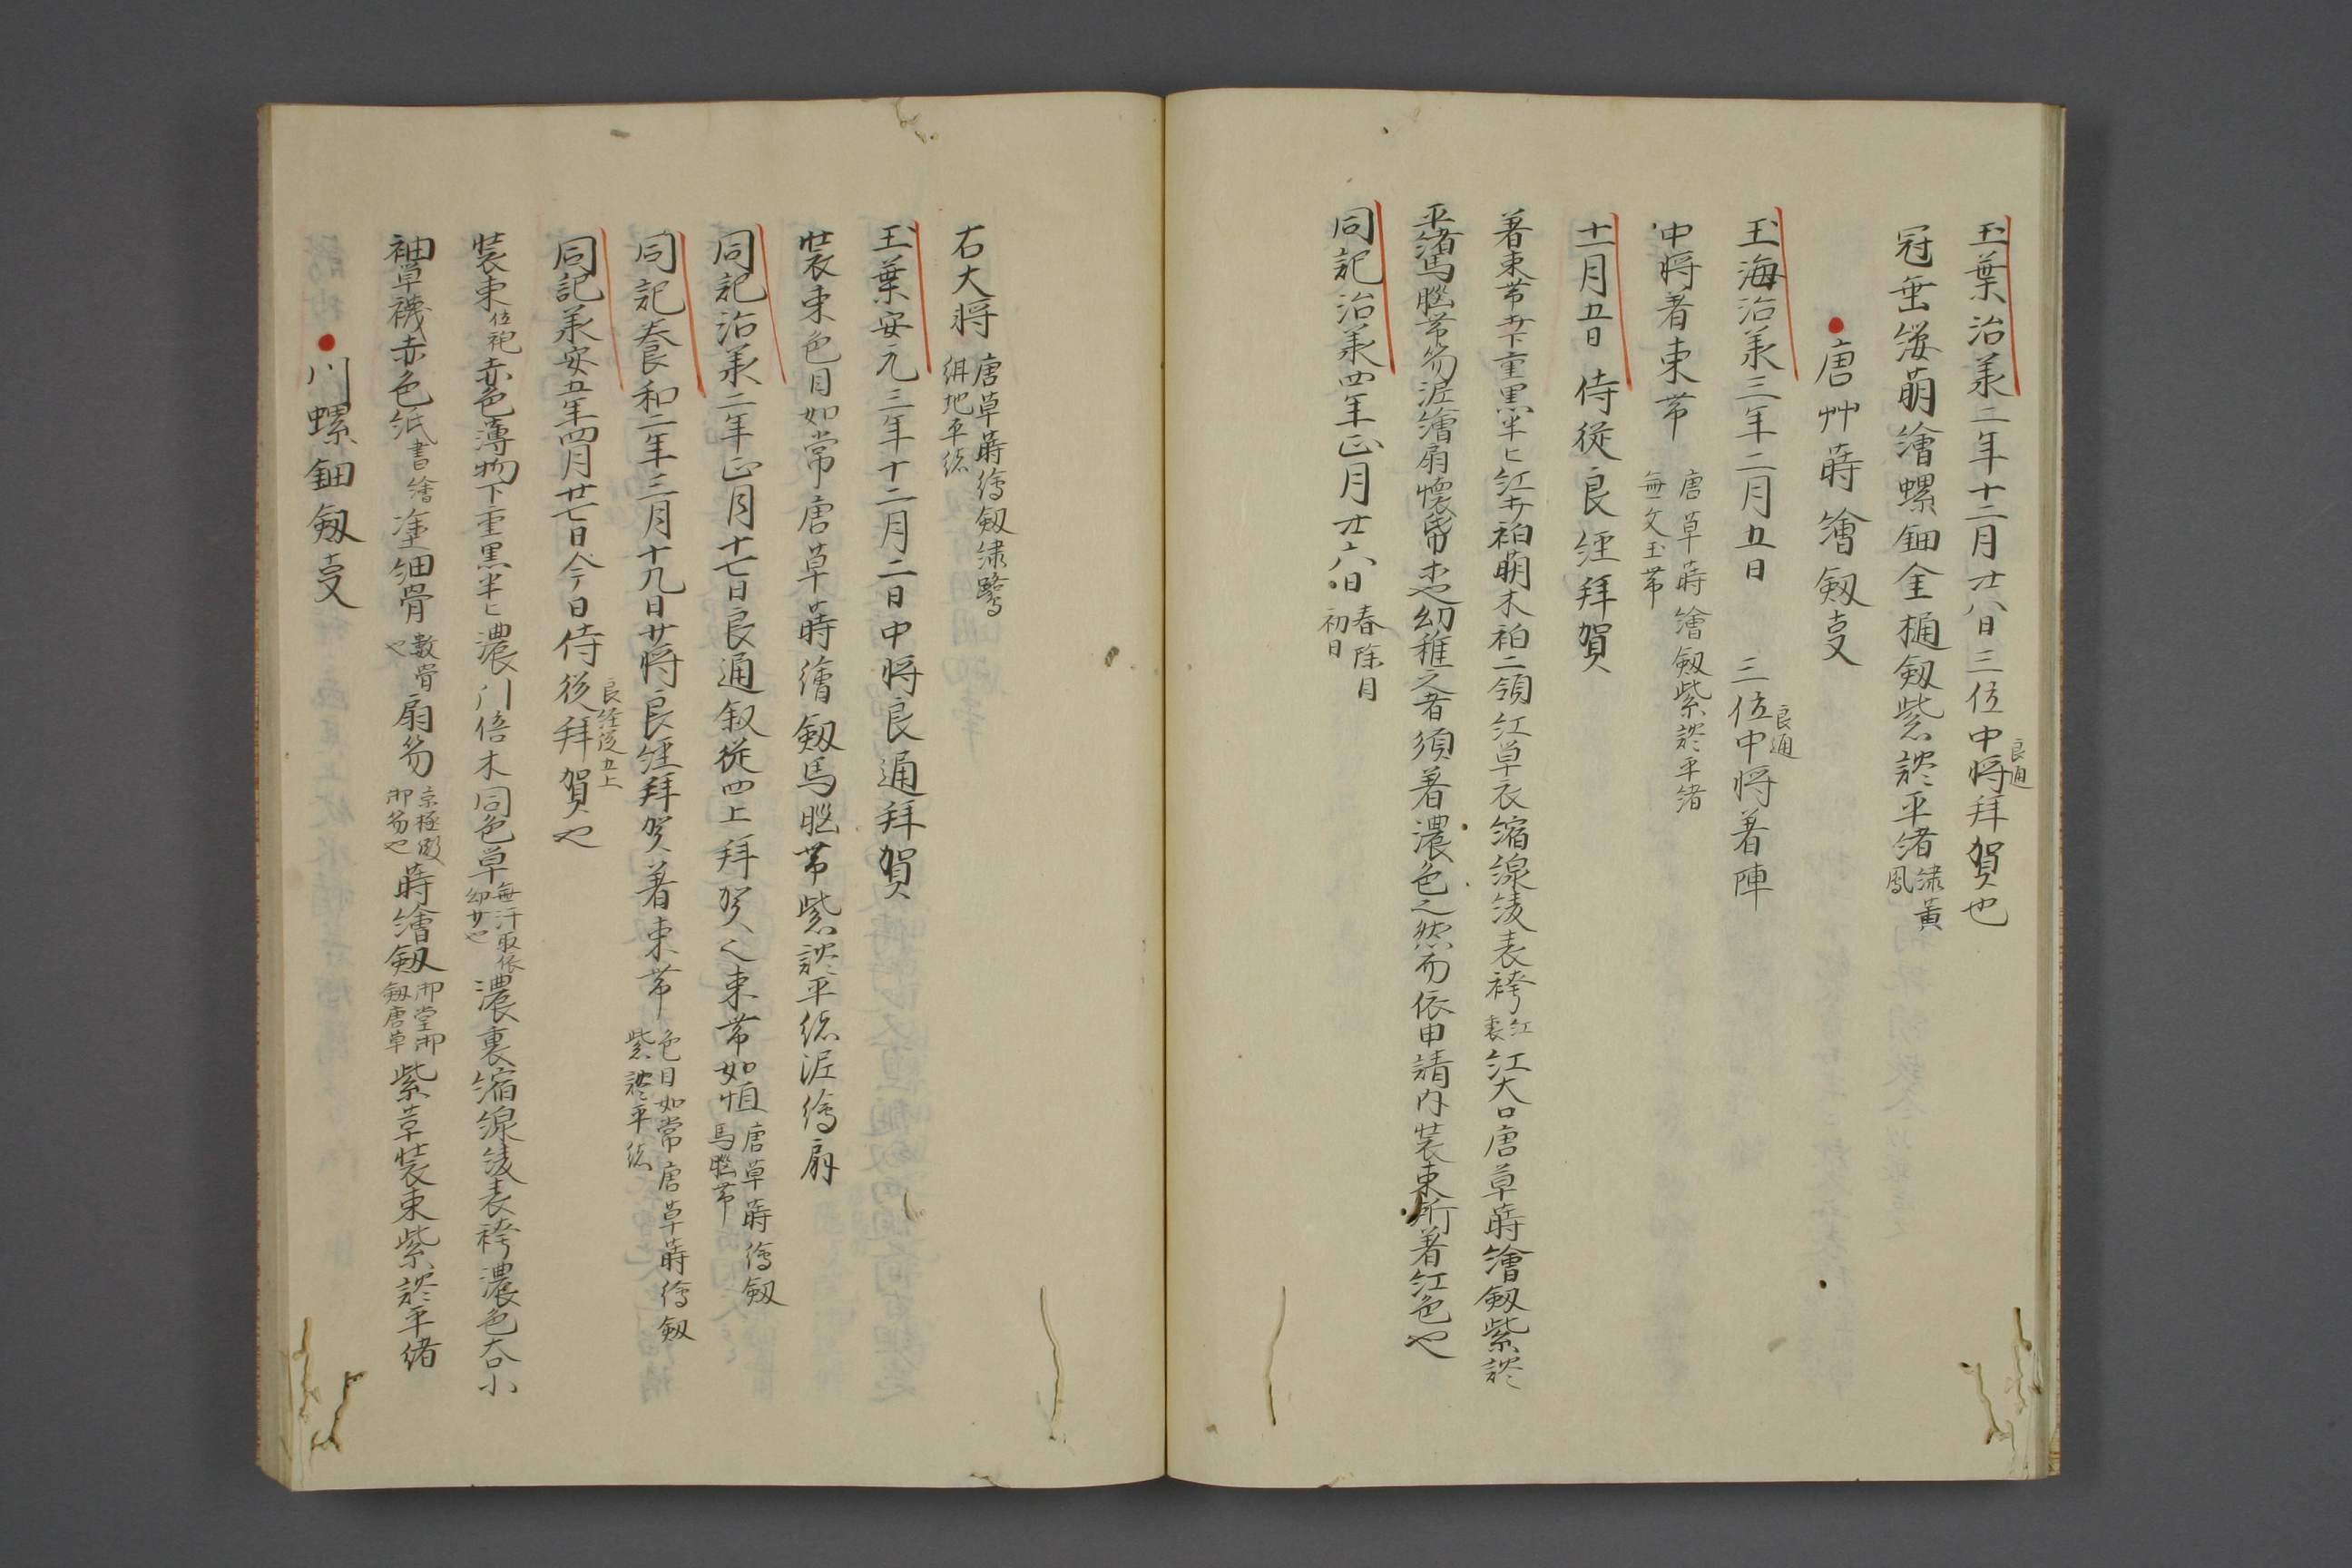 玉葉治承二年十二月廿八日三位中将良通拜賀也
冠垂纓萌繪螺鈿金樋劔紫談平緒繍黄鳳
唐艸蒔繪劔叓
玉海治承三年二月五日 三位中将良通著陣
中将著束帶 唐草蒔繪劔紫談平緒
無文玉帶
十一月五日侍從良經拜賀
著束帶 下重黒半ヒ紅 袙萌木袙二領紅草衣縮線綾表袴紅裏紅大口唐草蒔繪劔紫談
平緒馬脳帶笏泥繪扇懐帋 幼稚之者須著濃色之然而依申請内裝束所著紅色也
同記治承四年正月廿六日春除目初日
右大将 唐草蒔繪劔繍鷺
紺地平緒
玉葉安元三年十二月二日中将良通拜賀
裝束色目如常唐草蒔繪劔馬脳帶紫談平緒泥繪扇
同記治承二年正月十七日良通叙從四上拜賀之束帶如恒 唐草蒔繪劔
馬脳帶
同記養和二年三月十九日少将良經拜賀著束帶 色目如常唐草蒔繪劔
紫談平緒
同記承安五年四月廿七日今日侍從良経從五上拜賀也
裝束位袍赤色薄物下重黒半ヒ濃 倍木同色草無汗取依幼少也濃裏縮線綾表袴濃色大口小
袖草襪赤色紙書繪塗細骨数骨也扇笏京極殿御笏也蒔繪劔御堂御劔唐草紫草裝束紫談平緒
螺鈿劔叓